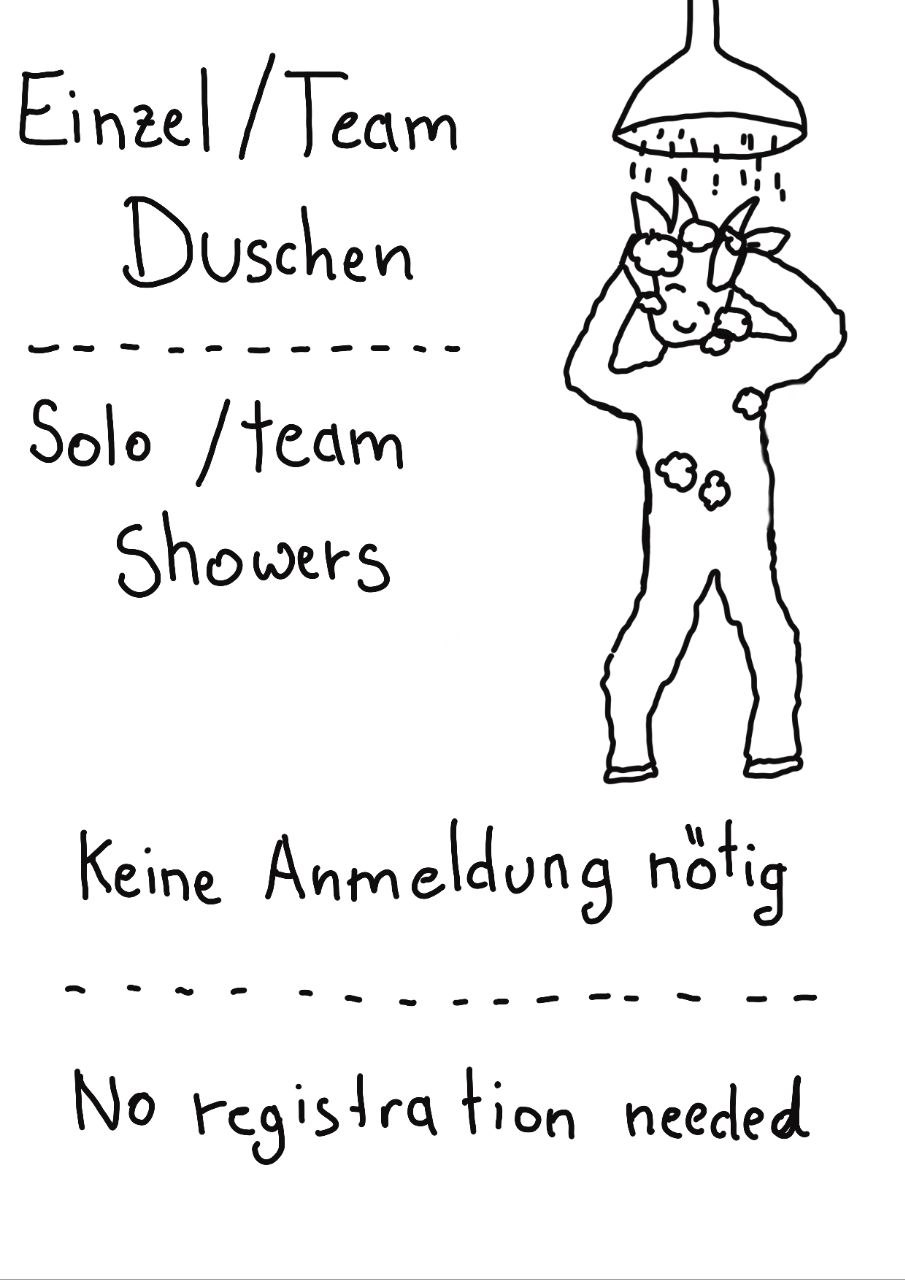 Einzel/Team
Duschen
Solo/team
Showers
Keine Anmeldung nötig
No registration needed